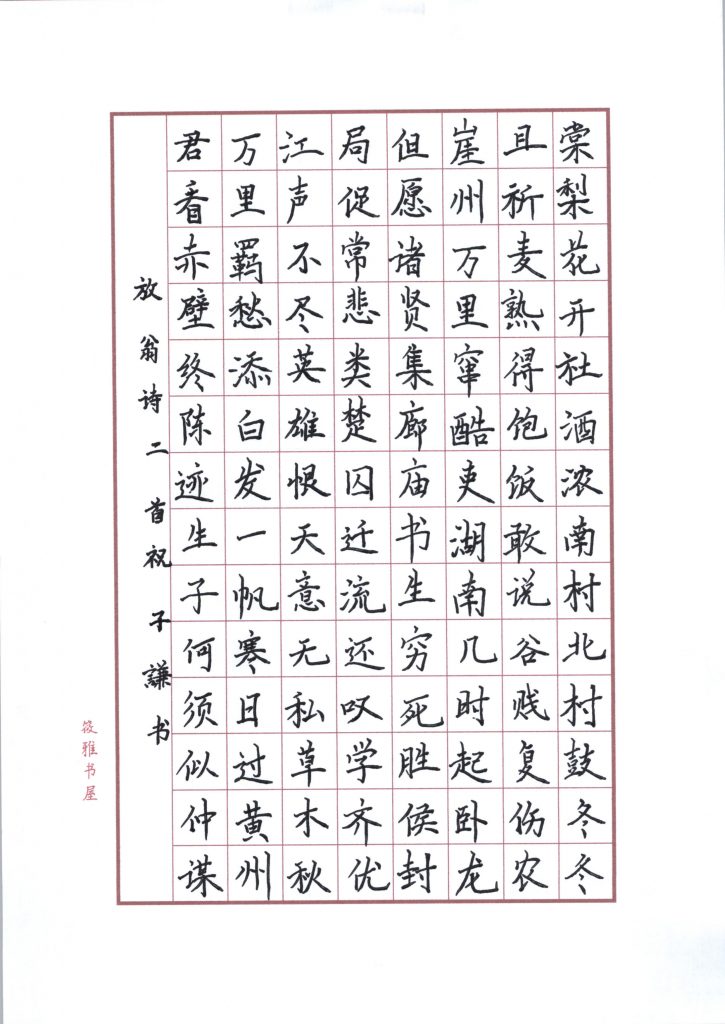 棠梨花开社酒浓南村北村鼓冬冬
且祈麦熟得饱饭敢说谷贱复伤农
崖州万里窜酷吏湖南几时起卧龙
但愿诸贤集廊庙书生穷死胜侯封
局促常悲类楚囚迁流还叹学齐优
江声不尽英雄恨天意无私草木秋
万里羁愁添白发一帆寒日过黄州
君看赤壁终陈迹生子何须似仲谋
放翁诗二首祝子谦书
筱雅书屋